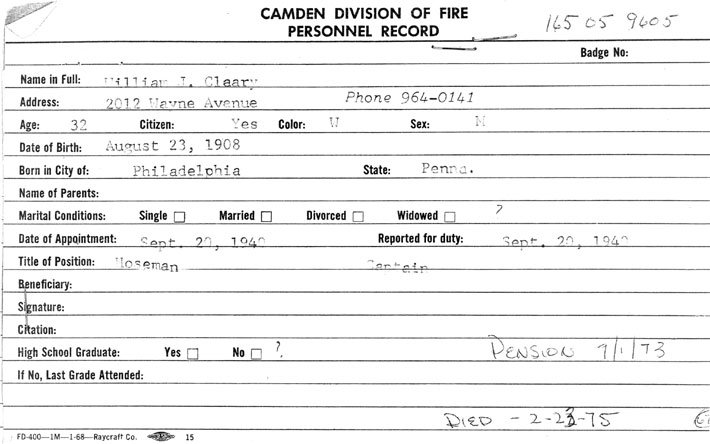 CAMDEN DIVISION OF FIRE
PERSONNEL RECORD
165 05 9605
Badge No:
Name in Full: William J. Claary
Address: 2012 Wayne Avenue Phone 964-0141
Age: 32 Citizen: Yes Color: W Sex: M
Date of Birth: August 23, 1908
Born in City of: Philadelphia State: Penna.
Name of Parents:
Marital Conditions: Single Married Divorced Widowed ?
Date of Appointment: Sept. 20, 1940 Reported for duty: Sept. 20, 1940
Title of Position: Hoseman Captain
Beneficiary:
Signature:
Citation:
High School Graduate: Yes No ? PENSION 9/1/73
If No, Last Grade Attended:
DIED - 2-23-75
FD-400—1M—1-68—Raycraft Co. 15